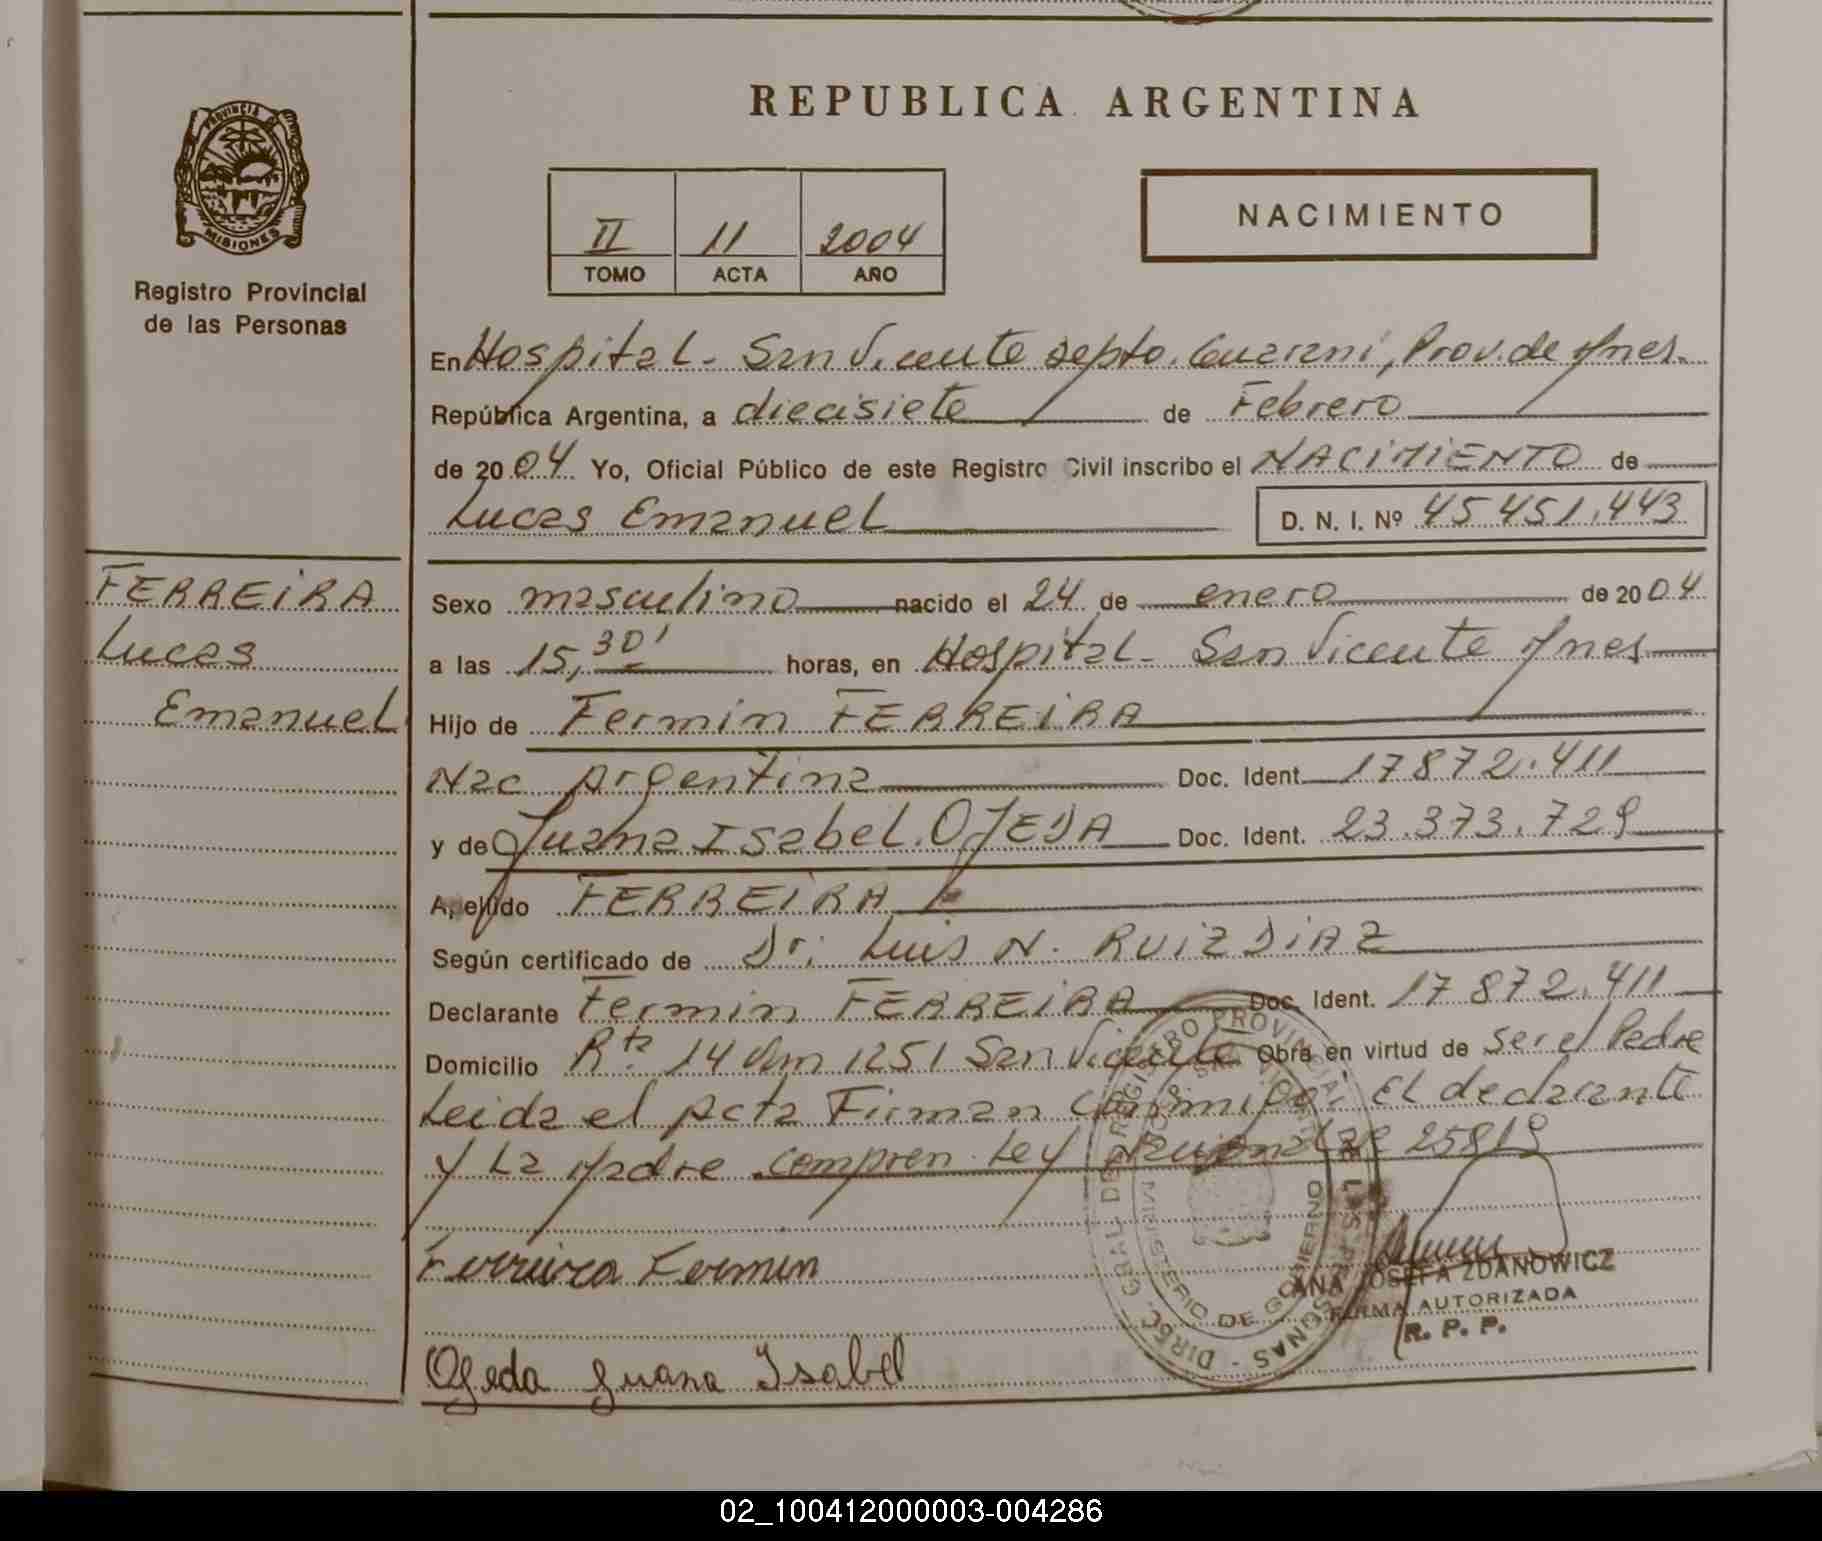 REPUBLICA ARGENTINA
PROVINCIA DE
MISIONES
Registro Provincial
de las Personas
II 11 2004
TOMO ACTA AÑO
NACIMIENTO
En Hospital - San Vicente Depto. Guarani, Prov. de Mnes.
República Argentina, a diecisiete de Febrero
de 2004 Yo, Oficial Público de este Registro Civil inscribo el NACIMIENTO de
Lucas Emanuel D. N. I. Nº 45 451.443
FERREIRA
Lucas
Emanuel
Sexo masculino nacido el 24 de enero de 2004
a las 15,30' horas, en Hospital - San Vicente Mnes
Hijo de Fermin FERREIRA
Nac Argentina Doc. Ident. 17872.411
y de Juana Isabel. OJEDA Doc. Ident. 23.373.729
Apellido FERREIRA
Según certificado de Dr. Luis N. RUIZ DIAZ
Declarante Fermin FERREIRA Doc. Ident. 17872.411
Domicilio Rta. 14 Km 1251 San Vicente Obra en virtud de ser el Padre
Leida el Acta Firman conmigo: El declarante
y La Madre compren. Ley Nacional 25819
Ferreira Fermin
Ojeda Juana Isabel
DIREC. GRAL. DEL REGISTRO PROVINCIAL DE LAS PERSONAS
MINISTERIO DE GOBIERNO
ANA JOSEFA ZDANOWICZ
FIRMA AUTORIZADA
R. P. P.
02_100412000003-004286